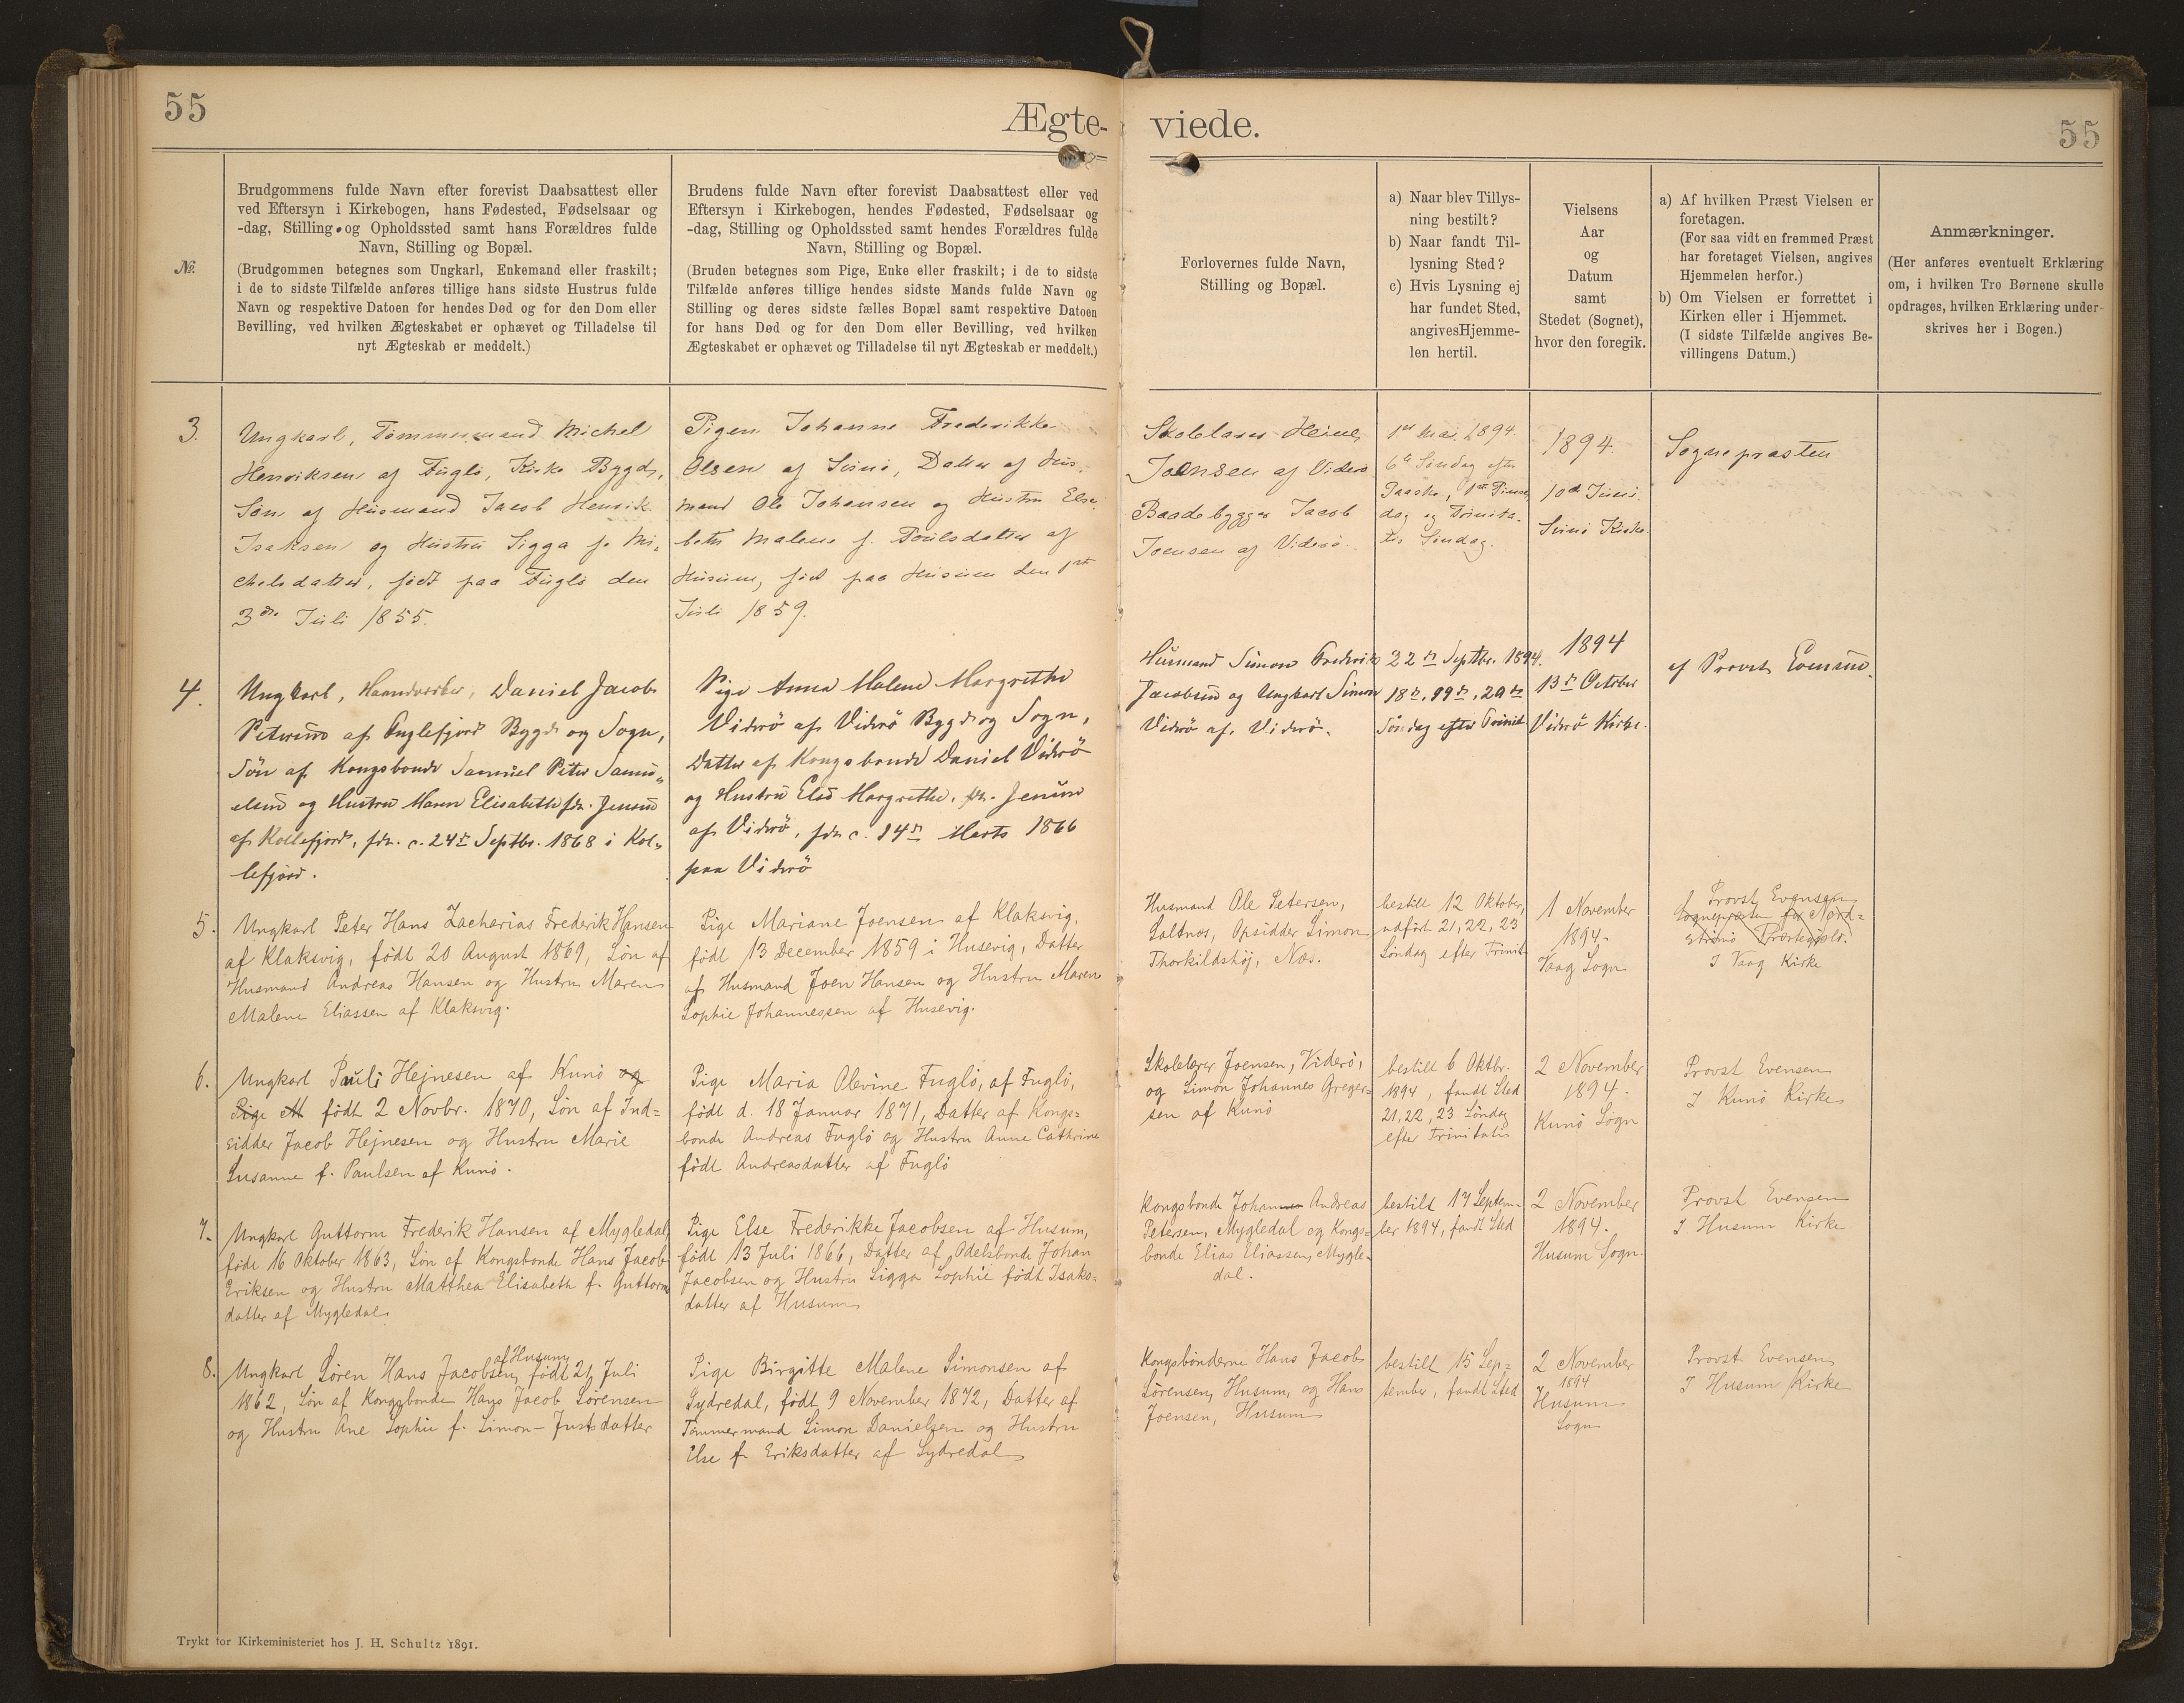 55
Ægte-
viede.
55
№.
Brudgommens fulde Navn efter forevist Daabsattest eller
ved Eftersyn i Kirkebogen, hans Fødested, Fødselsaar og
-dag, Stilling og Opholdssted samt hans Forældres fulde
Navn, Stilling og Bopæl.
(Brudgommen betegnes som Ungkarl, Enkemand eller fraskilt;
i de to sidste Tilfælde anføres tillige hans sidste Hustrus fulde
Navn og respektive Datoen for hendes Død og for den Dom eller
Bevilling, ved hvilken Ægteskabet er ophævet og Tilladelse til
nyt Ægteskab er meddelt.)
Brudens fulde Navn efter forevist Daabsattest eller ved
Eftersyn i Kirkebogen, hendes Fødested, Fødselsaar og
-dag, Stilling og Opholdssted samt hendes Forældres fulde
Navn, Stilling og Bopæl.
(Bruden betegnes som Pige, Enke eller fraskilt; i de to sidste
Tilfælde anføres tillige hendes sidste Mands fulde Navn og
Stilling og deres sidste fælles Bopæl samt respektive Datoen
for hans Død og for den Dom eller Bevilling, ved hvilken
Ægteskabet er ophævet og Tilladelse til nyt Ægteskab er meddelt.)
Forlovernes fulde Navn,
Stilling og Bopæl.
a) Naar blev Tillys-
ning bestilt?
b) Naar fandt Til-
lysning Sted?
c) Hvis Lysning ej
har fundet Sted,
angives Hjemme-
len hertil.
Vielsens
Aar
og
Datum
samt
Stedet (Sognet),
hvor den foregik.
a) Af hvilken Præst Vielsen er
foretagen.
(For saa vidt en fremmed Præst
har foretaget Vielsen, angives
Hjemmelen herfor.)
b) Om Vielsen er forrettet i
Kirken eller i Hjemmet.
(I sidste Tilfælde angives Be-
villingens Datum.)
Anmærkninger.
(Her anføres eventuelt Erklæring
om, i hvilken Tro Børnene skulle
opdrages, hvilken Erklæring under-
skrives her i Bogen.)
3.
Ungkarl, Tømmermand Michel
Henriksen af Fuglö, Kirke Bygd,
Søn af Husmand Jacob Henrik
Isaksen og Hustru Sigga f. Mi-
chelsdatter, født paa Fuglö den
3die Juli 1855.
Pigen Johanne Frederikke
Olsen af Svinö, Datter af Hus-
mand Ole Johansen og Hustru Else-
beth Malene f. Poulsdatter af
Husum, født paa Husum den 1ste
Juli 1859.
Skolelærer Heine
Joensen af Viderö
Baadebygger Jacob
Joensen af Viderö.
1ste Mai 1894.
6te Söndag efter
Paaske, 1ste Pinse-
dag og Trinita-
tis Söndag.
1894.
10de Juni.
Svinö Kirke.
Sognepræsten
4.
Ungkarl, Haandværker, Daniel Jacob
Petersen af Fuglefjord Bygd og Sogn,
Søn af Kongsbonde Samuel Peter Samu-
elsen og Hustru Maren Elisabeth fdt. Jensen
af Kollefjord, fdt. c. 24de Septbr. 1868 i Kol-
lefjord.
Pige Anna Malene Margrethe
Viderö af Viderö Bygd og Sogn,
Datter af Kongsbonde Daniel Viderö
og Hustru Else Margrethe, fdt. Jensen
af Viderö, fdt. c. 14de Marts 1866
paa Viderö
Husmand Simon Frederik
Jacobsen og Ungkarl Simon
Viderö af Viderö.
22de Septbr. 1894.
18de, 19de, 20de
Söndag efter Trinit.
1894
13de October
Viderö Kirke.
af Provst Evensen.
5.
Ungkarl Peter Hans Zacharias Frederik Hansen
af Klaksvig, født 20 August 1869, Søn af
Husmand Andreas Hansen og Hustru Maren
Malene Eliassen af Klaksvig.
Pige Mariane Joensen af Klaksvig,
født 13 December 1859 i Husevig, Datter
af Husmand Joen Hansen og Hustru Maren
Sophie Johannessen af Husevig.
Husmand Ole Petersen,
Saltnæs, Opsidder Simon
Thorkildshöj, Næs.
bestilt 12 Oktober,
udført 21, 22, 23
Söndag efter Trinit.
1 November
1894.
Vaag Sogn
Provst Evensen
Sognepræsten for Nord-
strömö Præstegjeld.
I Vaag Kirke
6.
Ungkarl Pauli Hejnesen af Kunö og
Pige M født 2 Novbr. 1870, Søn af Ind-
sidder Jacob Hejnesen og Hustru Marie
Susanne f. Paulsen af Kunö.
Pige Maria Olevine Fuglö, af Fuglö,
født d. 18 Januar 1871, Datter af Kongs-
bonde Andreas Fuglö og Hustru Anne Cathrine
født Andreasdatter af Fuglö
Skolelærer Joensen, Viderö,
og Simon Johannes Greger-
sen af Kunö
bestilt 6 Oktbr.
1894, fandt Sted
21, 22, 23 Söndag
efter Trinitatis
2 November
1894.
Kunö Sogn
Provst Evensen
I Kunö Kirke
7.
Ungkarl Guttorm Frederik Hansen af Mygledal,
født 16 Oktober 1863, Søn af Kongsbonde Hans Jacob
Eriksen og Hustru Matthea Elisabeth f. Guttorms
datter af Mygledal
Pige Else Frederikke Jacobsen af Husum,
født 13 Juli 1866, Datter af Odelsbonde Johan
Jacobsen og Hustru Sigga Sophie født Isaks-
datter af Husum
Kongsbonde Johannes Andreas
Petersen, Mygledal og Kongs-
bonde Elias Eliassen, Mygle-
dal.
bestilt 17 Septem-
ber 1894, fandt Sted
2 November
1894.
Husum Sogn.
Provst Evensen
I Husum Kirke
8.
af Husum,
Ungkarl Søren Hans Jacobsen, født 21 Juli
1862, Søn af Kongsbonde Hans Jacob Sørensen
og Hustru Ane Sophie f. Simon-Justsdatter
Pige Birgitte Malene Simonsen af
Sydredal, født 9 November 1872, Datter af
Tømmermand Simon Danielsen og Hustru
Else f. Eriksdatter af Sydredal
Kongsbönderne Hans Jacob
Sørensen, Husum, og Hans
Joensen, Husum
bestilt 15 Sep-
tember, fandt Sted
2 November
1894
Husum
Sogn
Provst Evensen
I Husum Kirke
Trykt for Kirkeministeriet hos J. H. Schultz 1891.